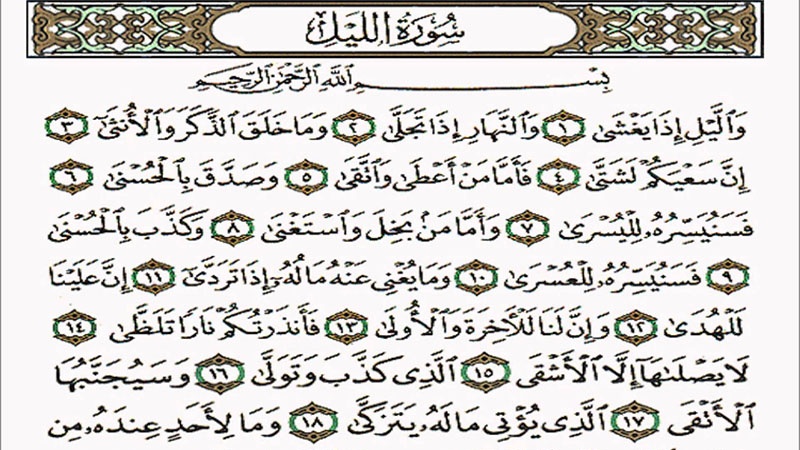 سُورَةُ اللَّيْلِ
بِسْمِ اللَّهِ الرَّحْمَٰنِ الرَّحِيمِ
وَٱلَّيْلِ إِذَا يَغْشَىٰ ١ وَٱلنَّهَارِ إِذَا تَجَلَّىٰ ٢ وَمَا خَلَقَ ٱلذَّكَرَ وَٱلْأُنثَىٰٓ ٣
إِنَّ سَعْيَكُمْ لَشَتَّىٰ ٤ فَأَمَّا مَنْ أَعْطَىٰ وَٱتَّقَىٰ ٥ وَصَدَّقَ بِٱلْحُسْنَىٰ ٦
فَسَنُيَسِّرُهُۥ لِلْيُسْرَىٰ ٧ وَأَمَّا مَنۢ بَخِلَ وَٱسْتَغْنَىٰ ٨ وَكَذَّبَ بِٱلْحُسْنَىٰ
٩ فَسَنُيَسِّرُهُۥ لِلْعُسْرَىٰ ١٠ وَمَا يُغْنِى عَنْهُ مَالُهُۥٓ إِذَا تَرَدَّىٰٓ ١١ إِنَّ عَلَيْنَا
لَلْهُدَىٰ ١٢ وَإِنَّ لَنَا لَلْءَاخِرَةَ وَٱلْأُولَىٰ ١٣ فَأَنذَرْتُكُمْ نَارًا تَلَظَّىٰ ١٤
لَا يَصْلَىٰهَآ إِلَّا ٱلْأَشْقَى ١٥ ٱلَّذِى كَذَّبَ وَتَوَلَّىٰ ١٦ وَسَيُجَنَّبُهَا
ٱلْأَتْقَى ١٧ ٱلَّذِى يُؤْتِى مَالَهُۥ يَتَزَكَّىٰ ١٨ وَمَا لِأَحَدٍ عِندَهُۥ مِن